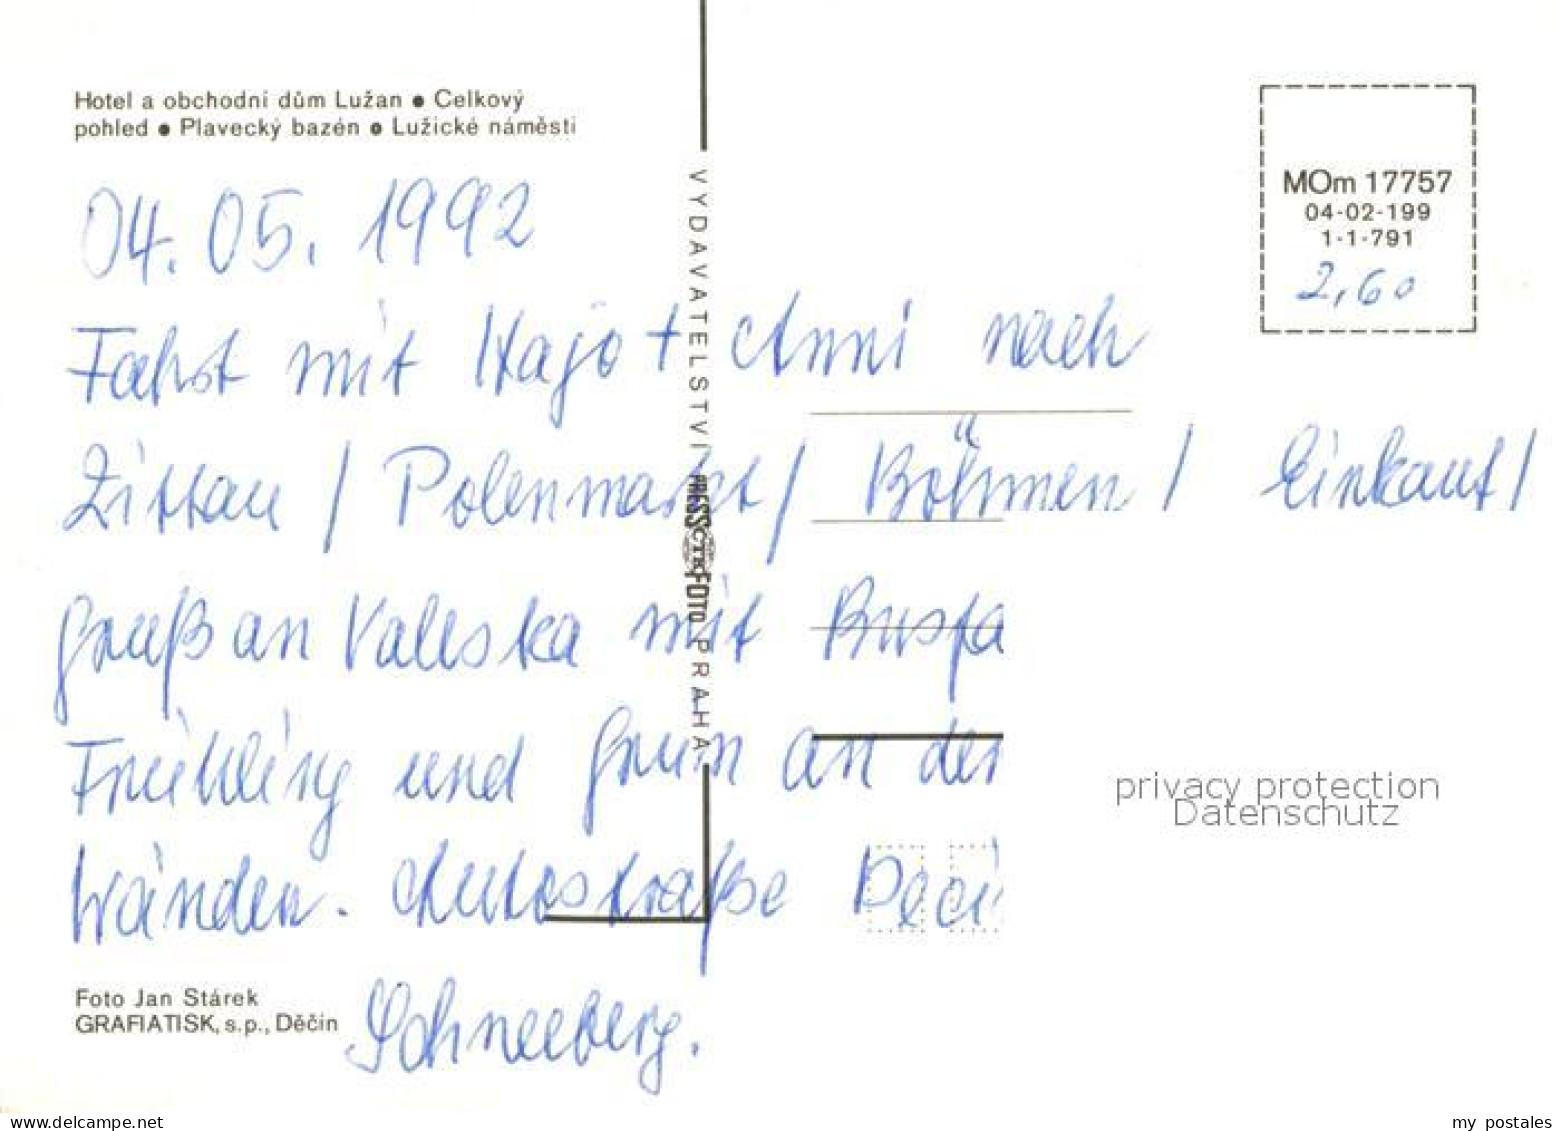 Hotel a obchodní dům Lužan ● Celkový
pohled ● Plavecký bazén ● Lužické náměstí
MOm 17757
04-02-199
1-1-791
2,60
04. 05. 1992
Fahrt mit Hajo + Anni nach
Zittau / Polenmarkt / Böhmen / Einkauf /
Gruß an Valeska mit
Frühling und Grün an den
Wänden. Autostraße Deci
Schneeberg.
VYDAVATELSTVÍ PRESSFOTO PRAHA
ČTK
Foto Jan Stárek
GRAFIATISK, s.p., Děčín
privacy protection
Datenschutz
www.delcampe.net
my_postales